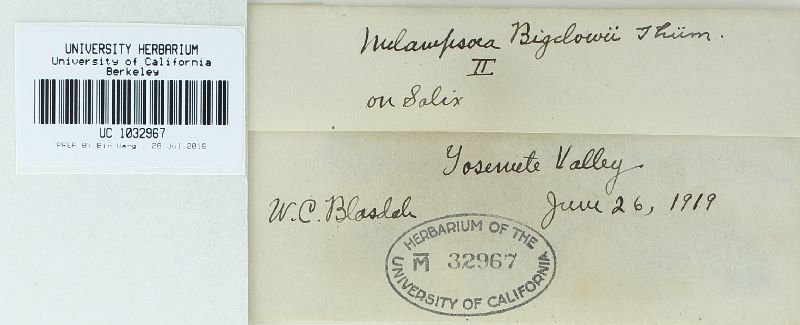 UNIVERSITY HERBARIUM
University of California
Berkeley
UC 1032967
PREP BY Bin Wang , 28 Jul 2016
Melampsora Bigelowii Thüm.
II
on Salix
Yosemite Valley
W.C. Blasdale June 26, 1919
HERBARIUM OF THE
M 32967
UNIVERSITY OF CALIFORNIA